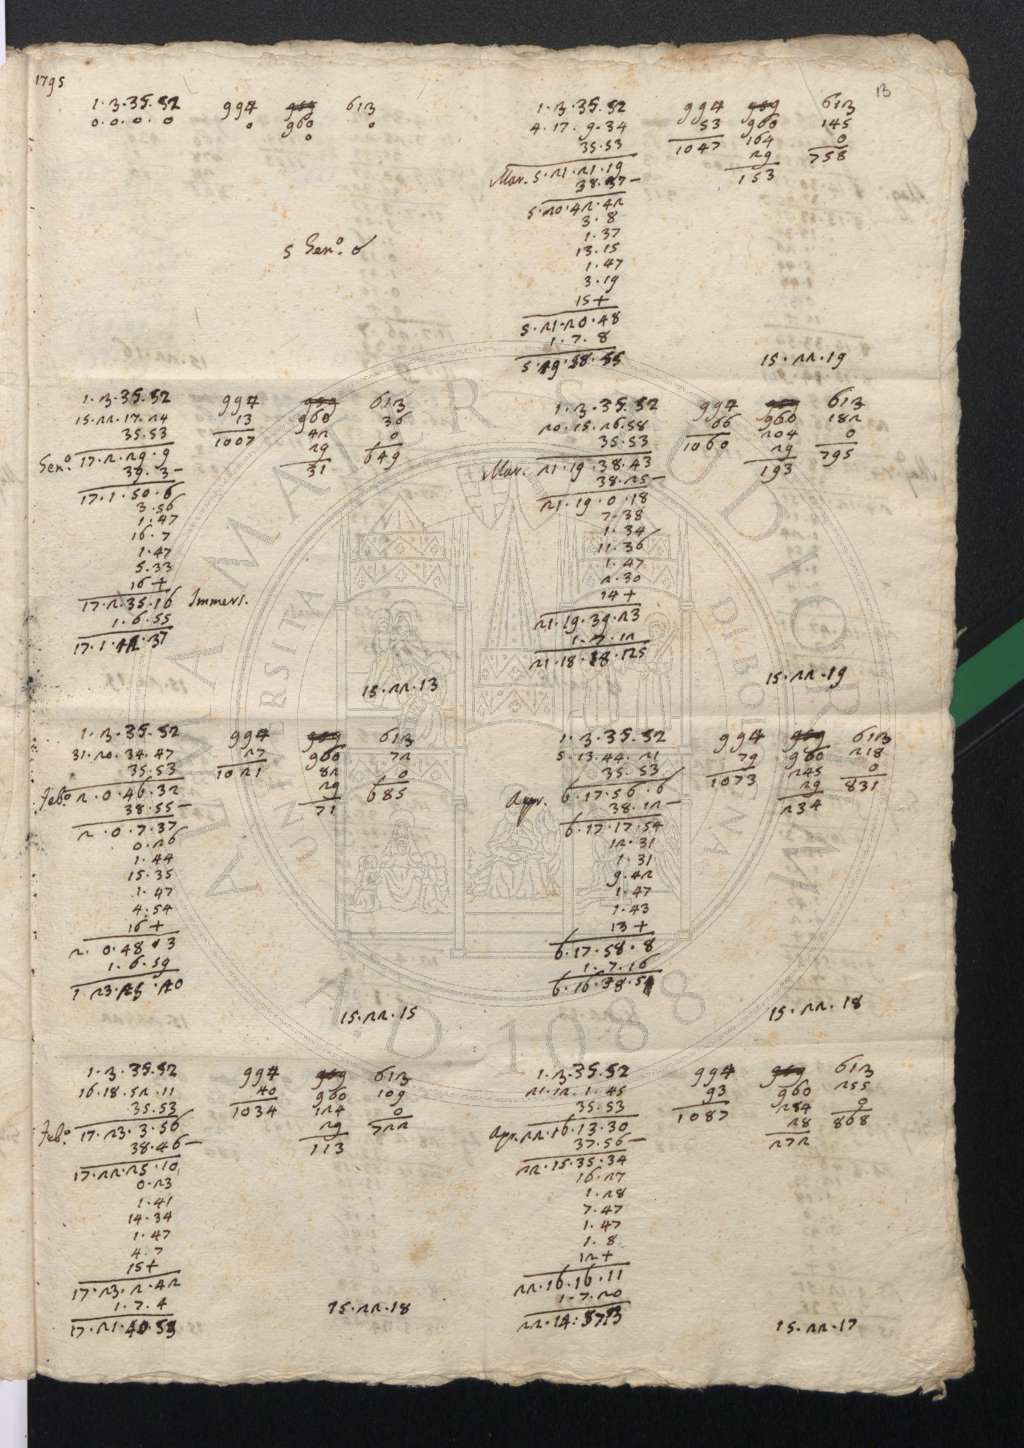 1795
13
1·3·35·52 994 959 613
0·0·0·0 0 960 0
0
5 Gen.º 0
1·3·35·52 994 959 613
15·22·17·24 13 960 36
35·53 1007 42 0
Gen.º 17·2·29·9 29 649
39·3- 31
17·1·50·6
3·56
1·47
16·7
1·47
5·33
16+
17·2·35·16 Immers.
1·6·55
17·1·42·37
15·22·13
1·3·35·52 994 959 613
31·20·34·47 27 960 72
35·53 1021 82 0
Feb.º 2·0·46·32 29 685
38·55- 71
2·0·7·37
0·26
1·44
15·35
1·47
4·54
16+
2·0·48·3
1·6·59
1·23·25·20
15·22·15
1·3·35·52 994 959 613
16·18·52·11 40 960 109
35·53 1034 124 0
Feb.º 17·23·3·56 29 722
38·46- 113
17·22·25·10
0·23
1·41
14·34
1·47
4·7
15+
17·23·2·42
1·7·4
17·21·40·53
15·22·18
1·3·35·52 994 959 613
4·17·9·34 53 960 145
35·53 1047 164 0
Mar. 5·21·21·19 29 758
38·37- 153
5·20·42·42
3·8
1·37
13·15
1·47
3·19
15+
5·21·20·48
1·7·8
5·19·58·55
15·22·19
1·3·35·52 994 959 613
20·15·26·58 66 960 182
35·53 1060 204 0
Mar. 21·19·38·43 29 795
38·25- 193
21·19·0·18
7·38
1·34
11·36
1·47
2·30
14+
21·19·39·23
1·7·12
21·18·18·25
15·22·19
1·3·35·52 994 959 613
5·13·44·21 79 960 218
35·53 1073 245 0
Apr. 6·17·56·6 29 831
38·12- 234
6·17·17·54
12·31
1·31
9·42
1·47
1·43
13+
6·17·58·8
1·7·16
6·16·38·51
15·22·18
1·3·35·52 994 959 613
21·12·1·45 93 960 255
35·53 1087 284 0
Apr. 22·16·13·30 28 868
37·56- 272
22·15·35·34
16·27
1·28
7·47
1·47
1·8
12+
22·16·16·11
1·7·20
22·14·57·13
15·22·17
ALMA MATER STUDIORUM
A.D. 1088